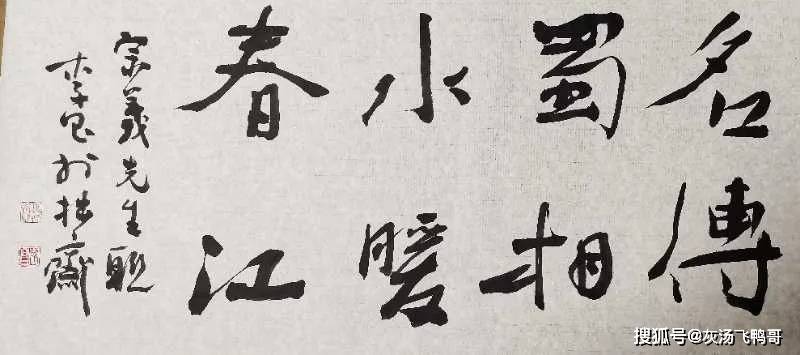 名傳
蜀相
水暖
春江
宗義先生聯
李 於拙齋
搜狐号@灰汤飞鸭哥